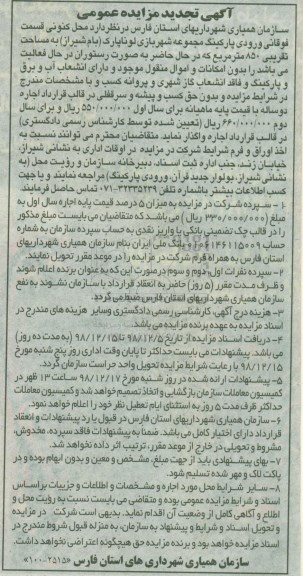 آگهی تجدید مزایده عمومی
سازمان همیاری شهرداریهای استان فارس در نظر دارد محل کنونی قسمت
فوقانی ورودی پارکینگ مجموعه شهربازی لوناپارک (بام شیراز) به مساحت
تقریبی ۸۵۰ مترمربع که در حال حاضر به صورت رستوران در حال فعالیت
می باشد را بدون امکانات و اموال منقول موجود و دارای انشعاب آب و برق
و پارکینگ و فاقد انشعاب گاز شهری و پروانه کسب و با مشخصات مندرج
در شرایط مزایده و بدون حق کسب و پیشه و سرقفلی در قالب قرارداد اجاره
دوساله با قیمت پایه ماهیانه برای سال اول ۵۵۰/۰۰۰/۰۰۰ ریال و برای سال
دوم ۶۶۰/۰۰۰/۰۰۰ ریال (تعیین شده توسط کارشناس رسمی دادگستری)
در قالب قرارداد اجاره واگذار نماید. متقاضیان محترم می توانند نسبت به
اخذ اوراق و فرم شرایط شرکت در مزایده در اوقات اداری به نشانی شیراز،
خیابان زند، جنب اداره ثبت اسناد، دبیرخانه سازمان و رؤیت محل (به
نشانی شیراز، بولوار جدید قرآن، ورودی پارکینگ) مراجعه نمایند و یا جهت
کسب اطلاعات بیشتر با شماره تلفن ۳۲۳۳۵۲۳۹-۰۷۱ تماس حاصل فرمایند.
۱- سپرده شرکت در مزایده به میزان ۵ درصد قیمت پایه اجاره سال اول به
مبلغ (۳۳۰/۰۰۰/۰۰۰ ریال) می باشد که متقاضیان می بایست مبلغ مذکور
را در قالب چک تضمینی بانکی یا واریز نقدی به حساب سپرده سازمان به شماره
حساب ۰۱۰۶۱۴۶۱۱۵۰۰۹ بانک ملی ایران بنام سازمان همیاری شهرداریهای
استان فارس به همراه فرم شرکت در مزایده را در موعد مقرر تحویل نمایند.
۲- سپرده نفرات اول، دوم و سوم در صورت این که به عنوان برنده اعلام شوند
و ظرف مدت مقرر (۵ روز) حاضر به انعقاد قرارداد با سازمان نشوند به نفع
سازمان همیاری شهرداریهای استان فارس ضبط می گردد.
۳- هزینه درج آگهی، کارشناسی رسمی دادگستری و سایر هزینه های مندرج در
اسناد مزایده به عهده برنده مزایده می باشد.
۴- دریافت اسناد مزایده از تاریخ ۹۸/۱۲/۵ تا ۹۸/۱۲/۱۵ (به مدت ده روز)
می باشد. پیشنهادات می بایست حداکثر تا پایان وقت اداری روز پنج شنبه مورخ
۹۸/۱۲/۱۵ با رعایت شرایط مزایده تحویل واحد حراست سازمان گردد.
۵- پیشنهادات ارائه شده در روز شنبه مورخ ۹۸/۱۲/۱۷ ساعت ۱۳ ظهر در
کمیسیون معاملات سازمان بازگشایی و اتخاذ تصمیم خواهد شد و کمیسیون معاملات
حداکثر ظرف مدت ۵ روز به استثنای ایام تعطیل نظر خود را اعلام خواهد نمود.
۶- سازمان همیاری شهرداریهای استان فارس در قبول یا رد پیشنهادات و انعقاد
قرارداد دارای اختیار کامل می باشد. ضمناً به پیشنهادات فاقد سپرده، مخدوش،
مشروط و تحویلی در خارج از موعد مقرر، ترتیب اثر داده نخواهد شد.
۷- بهای پیشنهادی باید از حیث مبلغ، مشخص و معین و بدون ابهام بوده و در
پاکت لاک و مهر شده تسلیم شود.
۸- سایر شرایط محل مورد اجاره و مشخصات و اطلاعات و جزییات براساس
اسناد و شرایط مزایده عمومی بوده و متقاضی می بایست نسبت به رؤیت محل و
اطلاع و آگاهی کامل از وضعیت آن اقدام نماید. بدیهی است شرکت در مزایده
و تحویل اسناد و شرایط و پیشنهاد به سازمان، به منزله قبول شروط مندرج در
اسناد مزایده خواهد بود و برنده مزایده حق هیچگونه اعتراضی نخواهد داشت.
سازمان همیاری شهرداری های استان فارس «۲۵۱۵-۱۰۰»